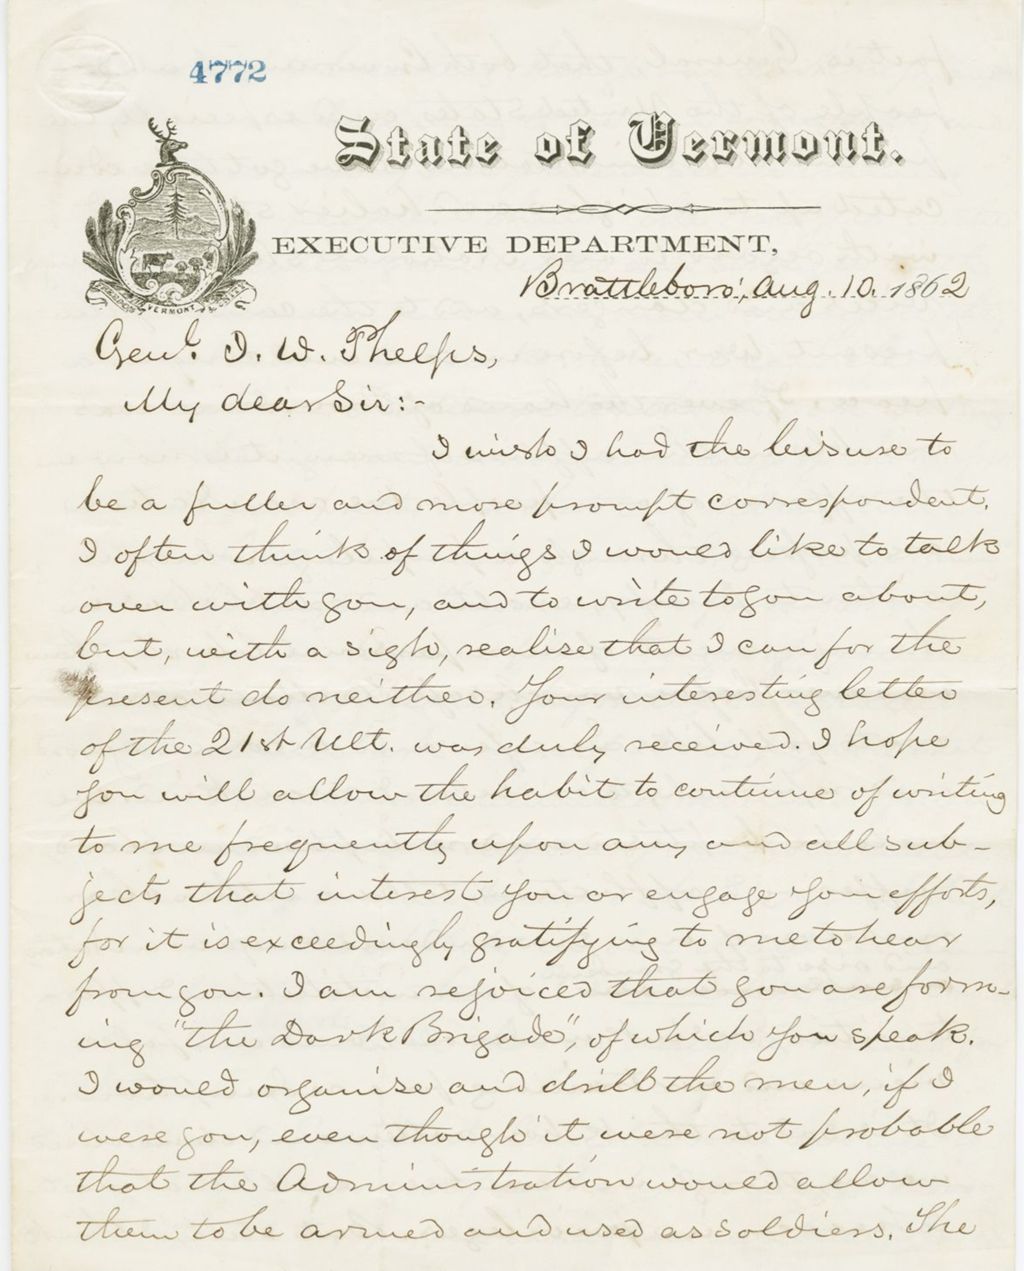 4772
State of Vermont.
EXECUTIVE DEPARTMENT,
Brattleboro', Aug. 10. 1862
VERMONT
Genl. J. W. Phelps,
My dear Sir:-
I wish I had the leisure to
be a fuller and more prompt correspondent.
I often think of things I would like to talk
over with you, and to write to you about,
but, with a sigh, realise that I can for the
present do neither. Your interesting letter
of the 21st Ult. was duly received. I hope
you will allow the habit to continue of writing
to me frequently upon any and all sub-
jects that interest you or engage your efforts,
for it is exceedingly gratifying to me to hear
from you. I am rejoiced that you are form-
ing "the Dark Brigade", of which you speak.
I would organise and drill the men, if I
were you, even though it were not probable
that the Administration would allow
them to be armed and used as soldiers. The